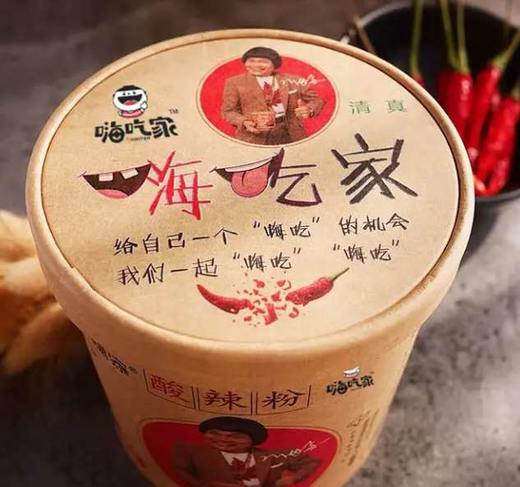 嗨吃家 TM
清真
嗨吃家
给自己一个“嗨吃”的机会
我们一起“嗨吃”“嗨吃”
酸辣粉
嗨吃家